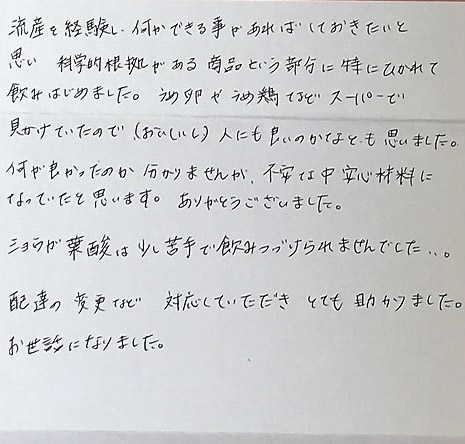 流産を経験し、何かできる事があればしておきたいと
思い 科学的根拠がある商品という部分に特にひかれて
飲みはじめました。うめ卵やうめ鶏などスーパーで
見かけていたので（おいしいし）人にも良いのかなとも思いました。
何が良かったのか分かりませんが、不安な中安心材料に
なっていたと思います。ありがとうございました。
ショウガ葉酸は少し苦手で飲みつづけられませんでした…。
配達の変更など 対応していただき とても助かりました。
お世話になりました。